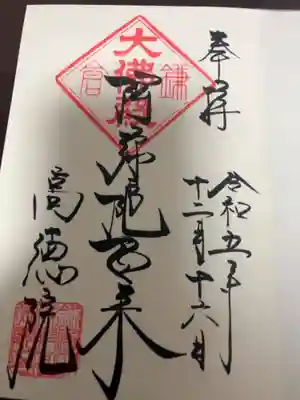 奉拝
令和五年
十二月十六日
大佛殿
鎌倉
阿弥陀如来
高徳院